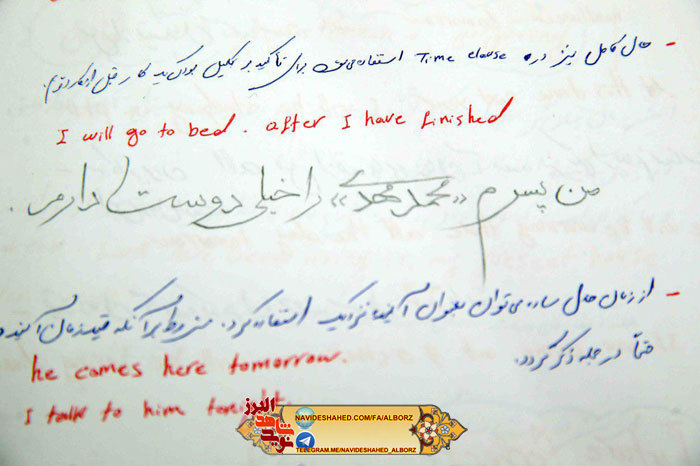 - حال کامل نیز در Time clause استفاده می‌شود برای تأکید بر تکمیل بودن یک کار قبل از کار دوم.
I will go to bed. after I have finished
من پسرم «محمدمهدی» را خیلی دوست دارم.
- از زمان حال ساده می‌توان بعنوان آینده نزدیک استفاده کرد. مشروط برآنکه قید زمان آینده
حتماً در جمله ذکر گردد.
he comes here tomorrow.
I talk to him tonight.
البرز
نوید شاهد
NAVIDESHAHED.COM/FA/ALBORZ
TELEGRAM.ME/NAVIDESHAHED_ALBORZ